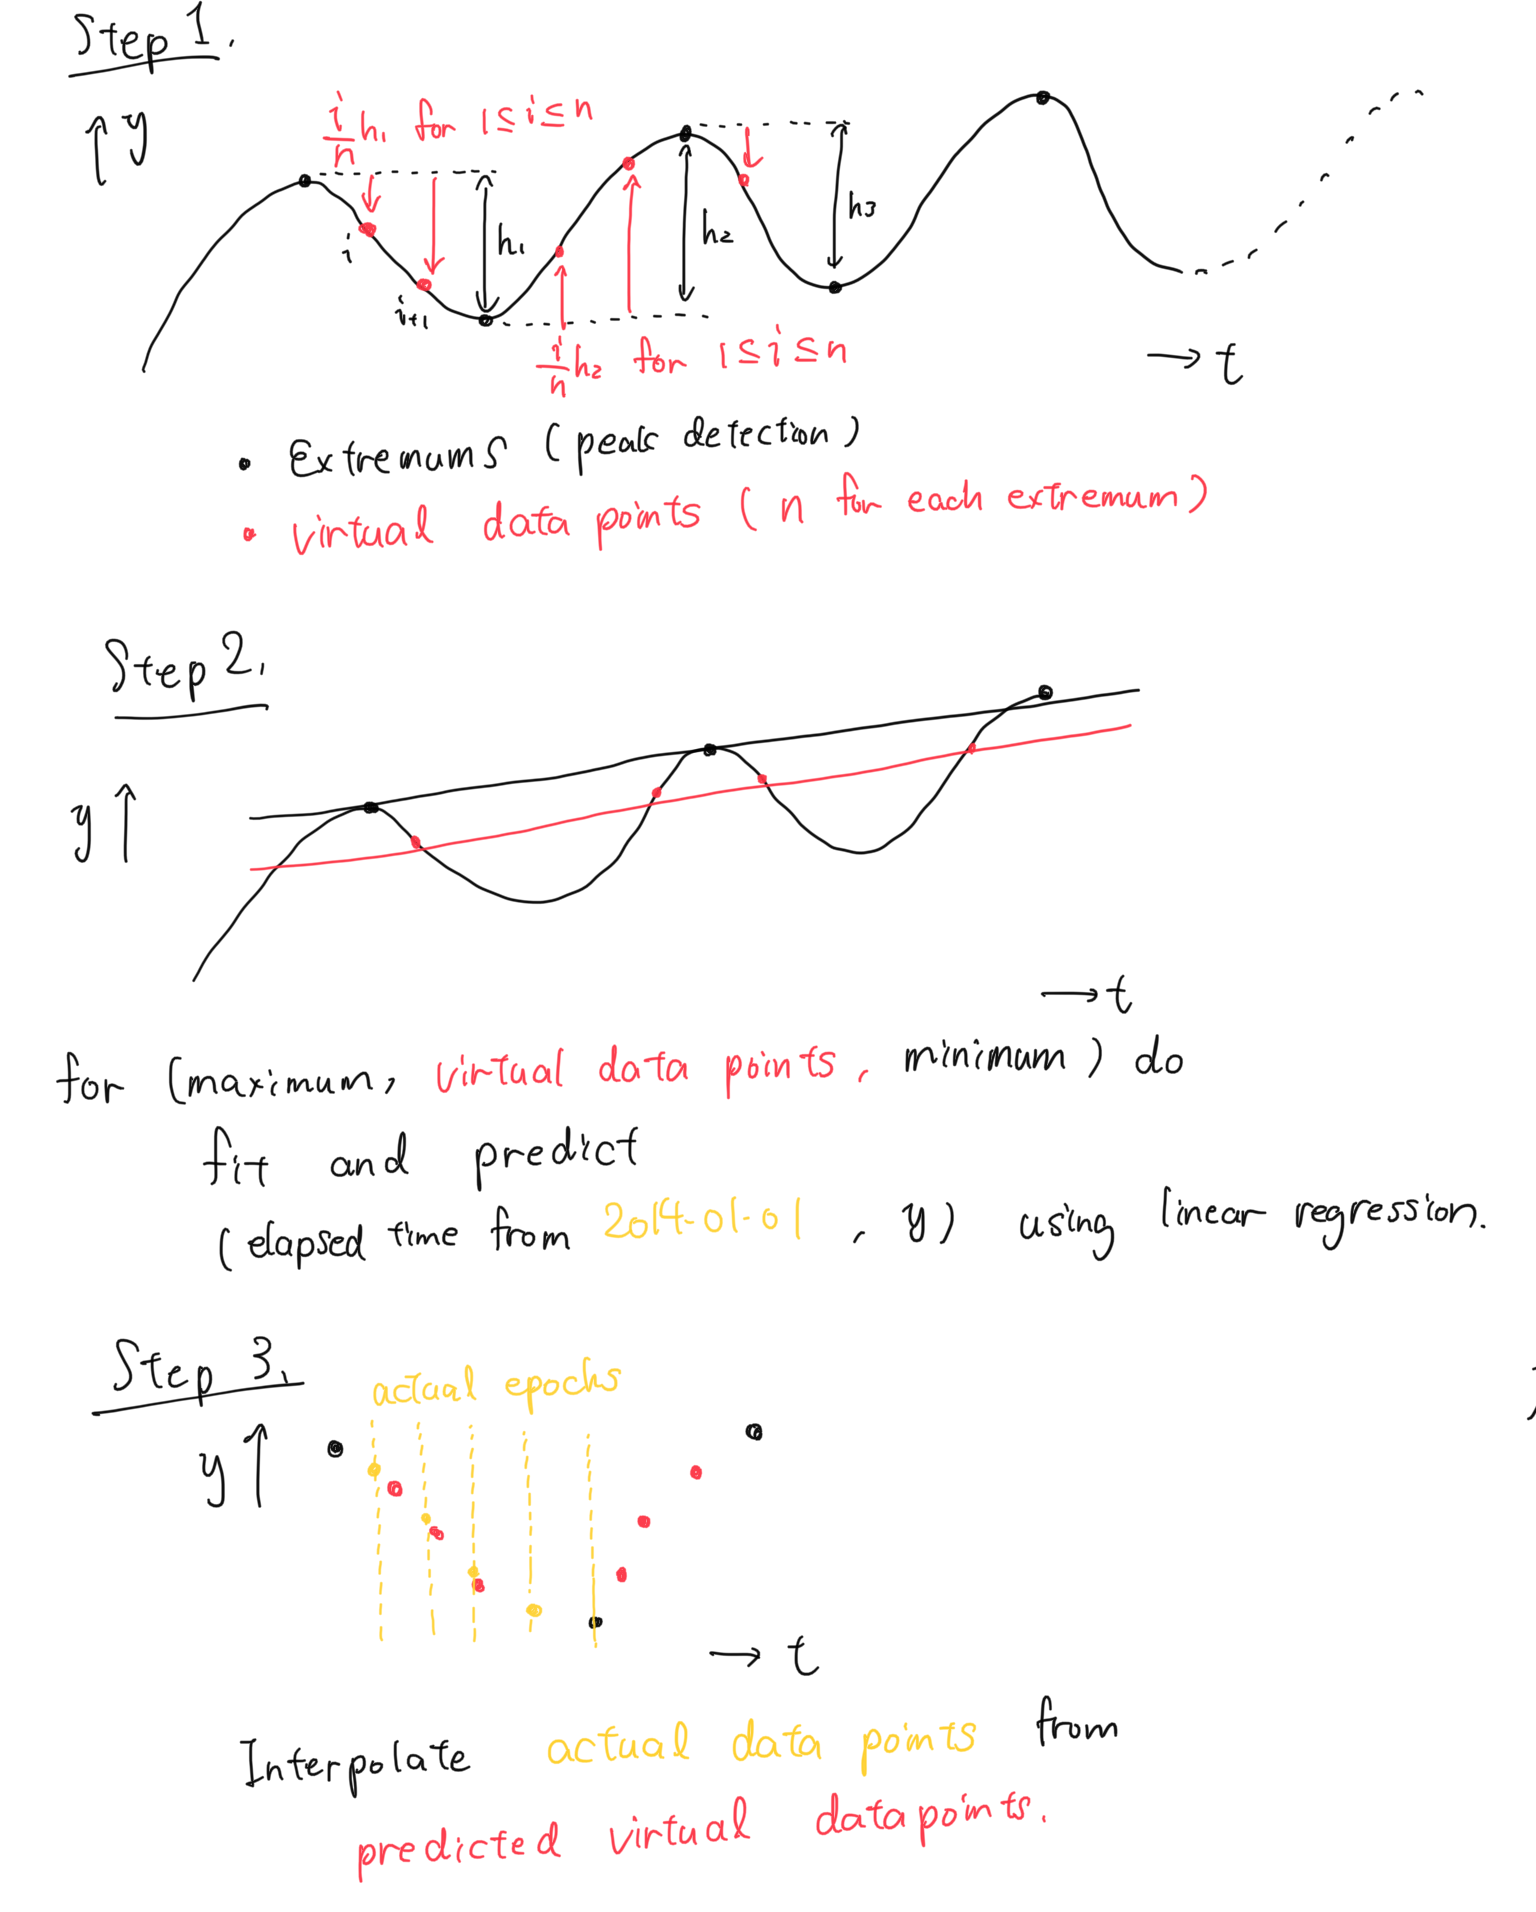 Step 1.
↑ y
i/n h₁ for 1 ≤ i ≤ n
h₁
h₂
h₃
i
i+1
i/n h₂ for 1 ≤ i ≤ n
→ t
• Extremums (peak detection)
• virtual data points (n for each extremum)
Step 2.
y ↑
→ t
for (maximum, virtual data points, minimum) do
fit and predict
(elapsed time from 2014-01-01, y) using linear regression.
Step 3.
actual epochs
y ↑
→ t
Interpolate actual data points from
predicted virtual data points.